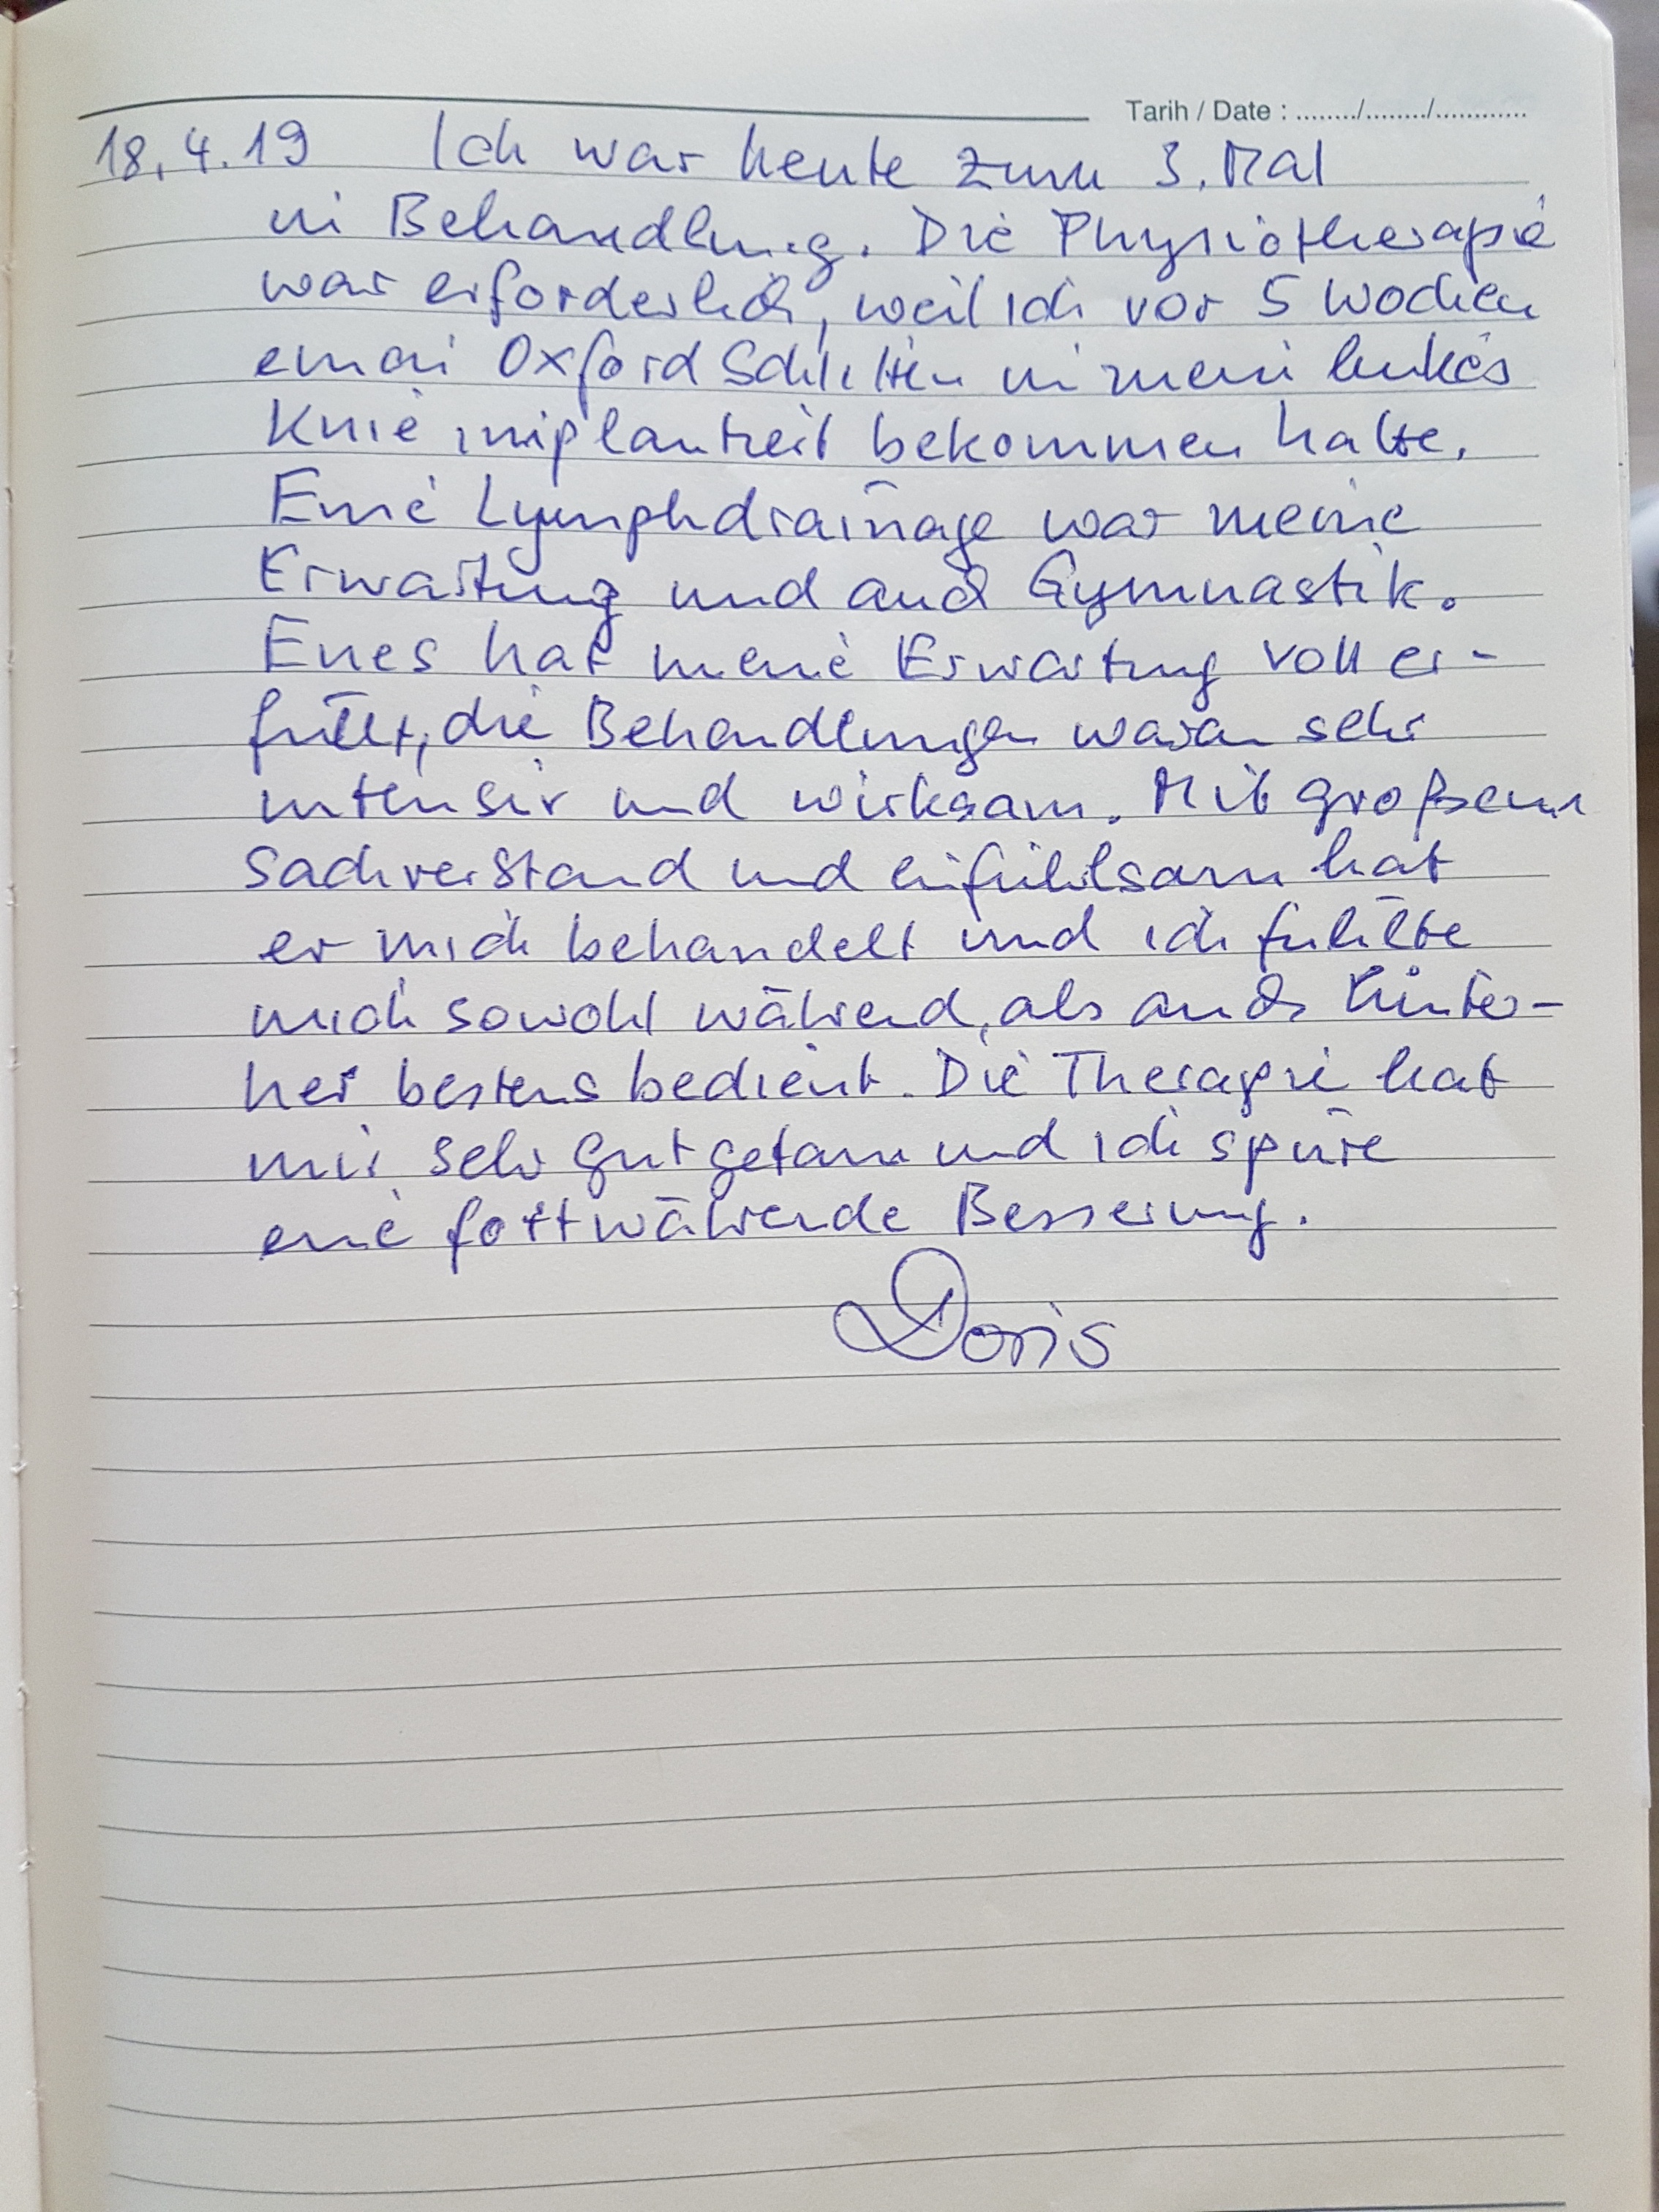 Tarih / Date : ......../......../............
18.4.19 Ich war heute zum 3. Mal
in Behandlung. Die Physiotherapie
war erforderlich, weil ich vor 5 Wochen
einen Oxford Schlitten in mein linkes
Knie implantiert bekommen hatte.
Eine Lymphdrainage war meine
Erwartung und auch Gymnastik.
Enes hat meine Erwartung voll er-
füllt, die Behandlungen waren sehr
intensiv und wirksam. Mit großem
Sachverstand und einfühlsam hat
er mich behandelt und ich fühlte
mich sowohl während, als auch hinter-
her bestens bedient. Die Therapie hat
mir sehr gut getan und ich spüre
eine fortwährende Besserung.
Doris